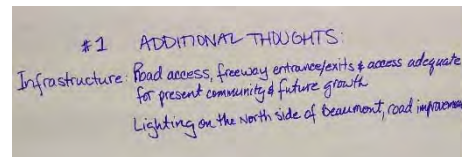 #1 ADDITIONAL THOUGHTS:
Infrastructure: Road access, freeway entrance/exits & access adequate
for present community & future growth
Lighting on the North side of Beaumont, road